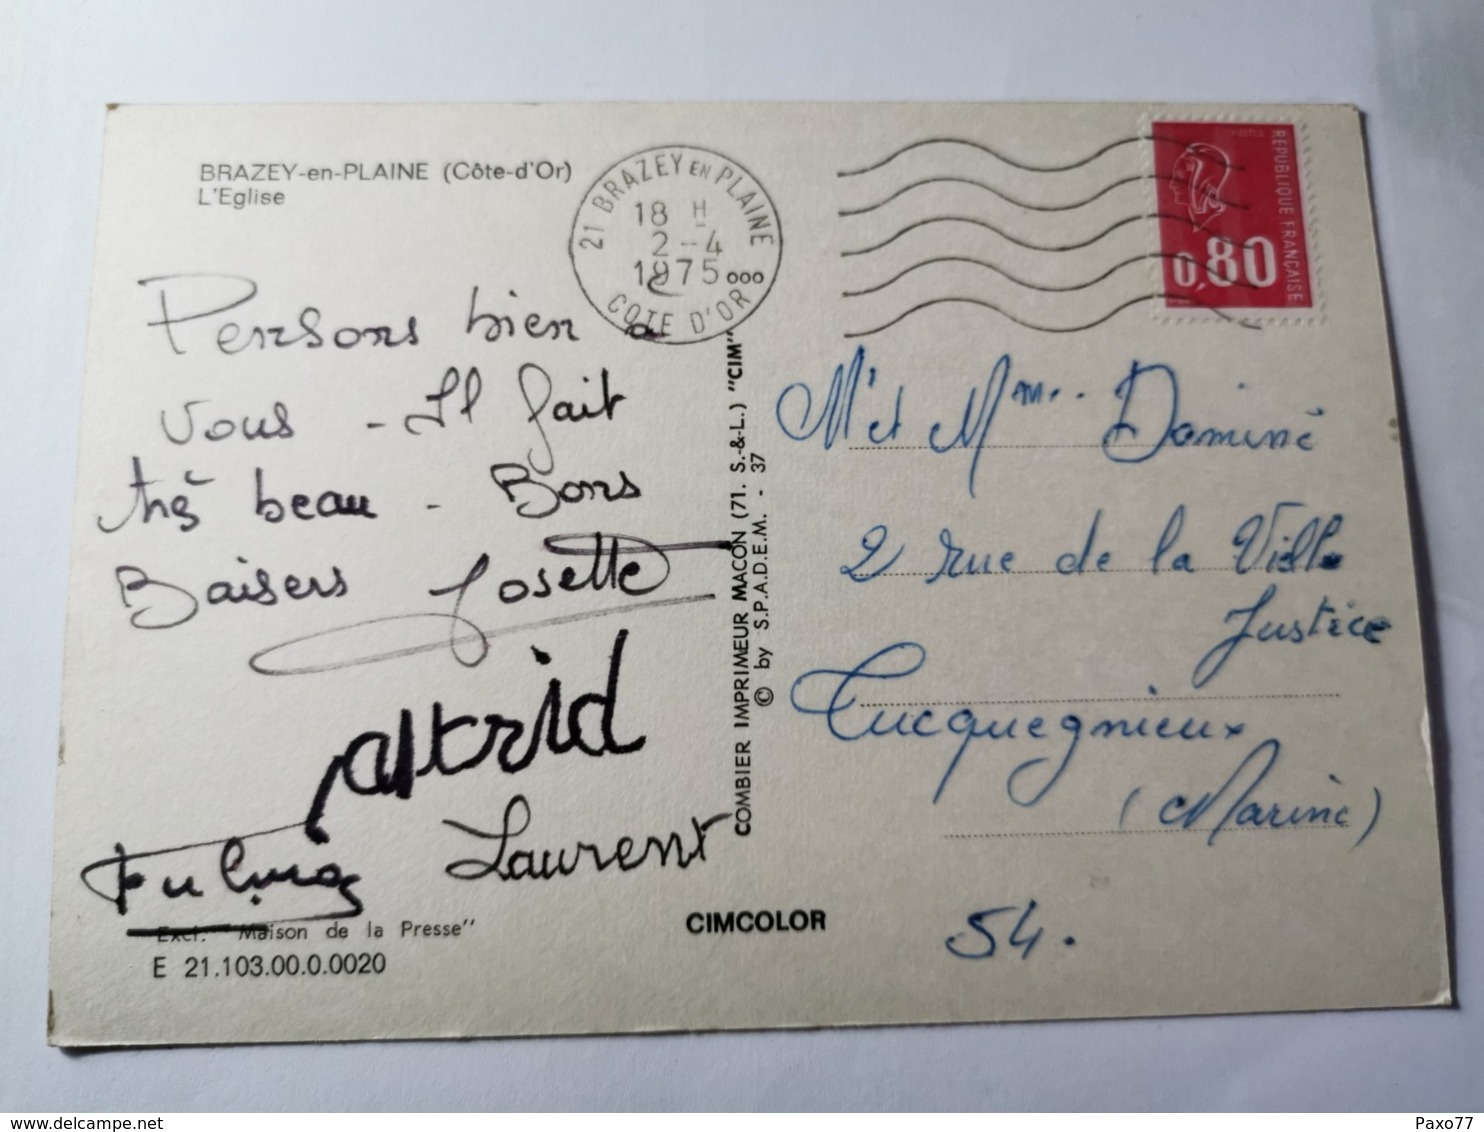 BRAZEY-en-PLAINE (Côte-d'Or)
L'Eglise
21 BRAZEY EN PLAINE
18 H
2-4
1975
COTE D'OR
POSTES
REPUBLIQUE FRANÇAISE
0,80
Pensons bien à
vous - Il fait
très beau - Bons
Baisers Josette
Astrid
Laurent
COMBIER IMPRIMEUR MACON (71. S.-&-L.) "CIM"
© by S.P.A.D.E.M. - 37
Mr et Mme Dominé
2 rue de la Vieille
Justice
Tucquegnieux
(Marine)
54.
Excl. "Maison de la Presse"
E 21.103.00.0.0020
CIMCOLOR
delcampe.net
Paxo77